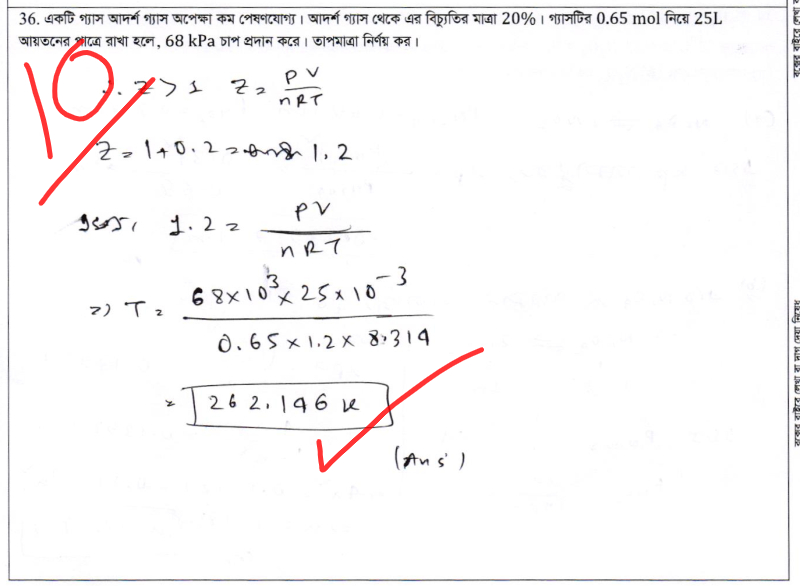 36. একটি গ্যাস আদর্শ গ্যাস অপেক্ষা কম পেষণযোগ্য। আদর্শ গ্যাস থেকে এর বিচ্যুতির মাত্রা 20%। গ্যাসটির 0.65 mol নিয়ে 25L
আয়তনের পাত্রে রাখা হলে, 68 kPa চাপ প্রদান করে। তাপমাত্রা নির্ণয় কর।
10
∴ Z > 1 Z = PV / nRT
Z = 1+0.2 = 1.2
1.2 = PV / nRT
=) T = 68×10³ × 25×10⁻³ / 0.65 × 1.2 × 8.314
= 262.146 K
(Ans)